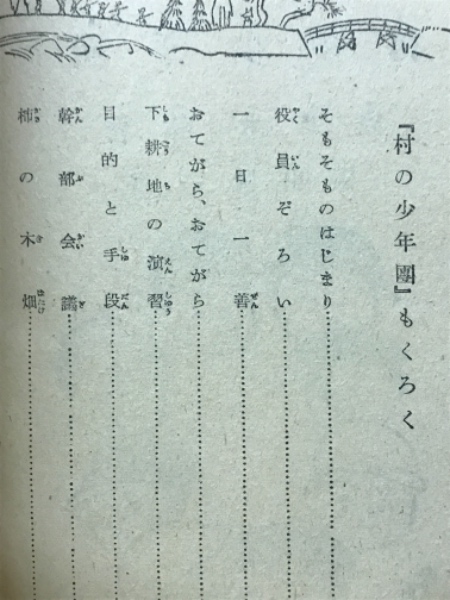 『村の少年團』もくろく
そもそものはじまり
役員ぞろい
一日一善
おてがら、おてがら
下耕地の演習
目的と手段
幹部会議
柿の木畑